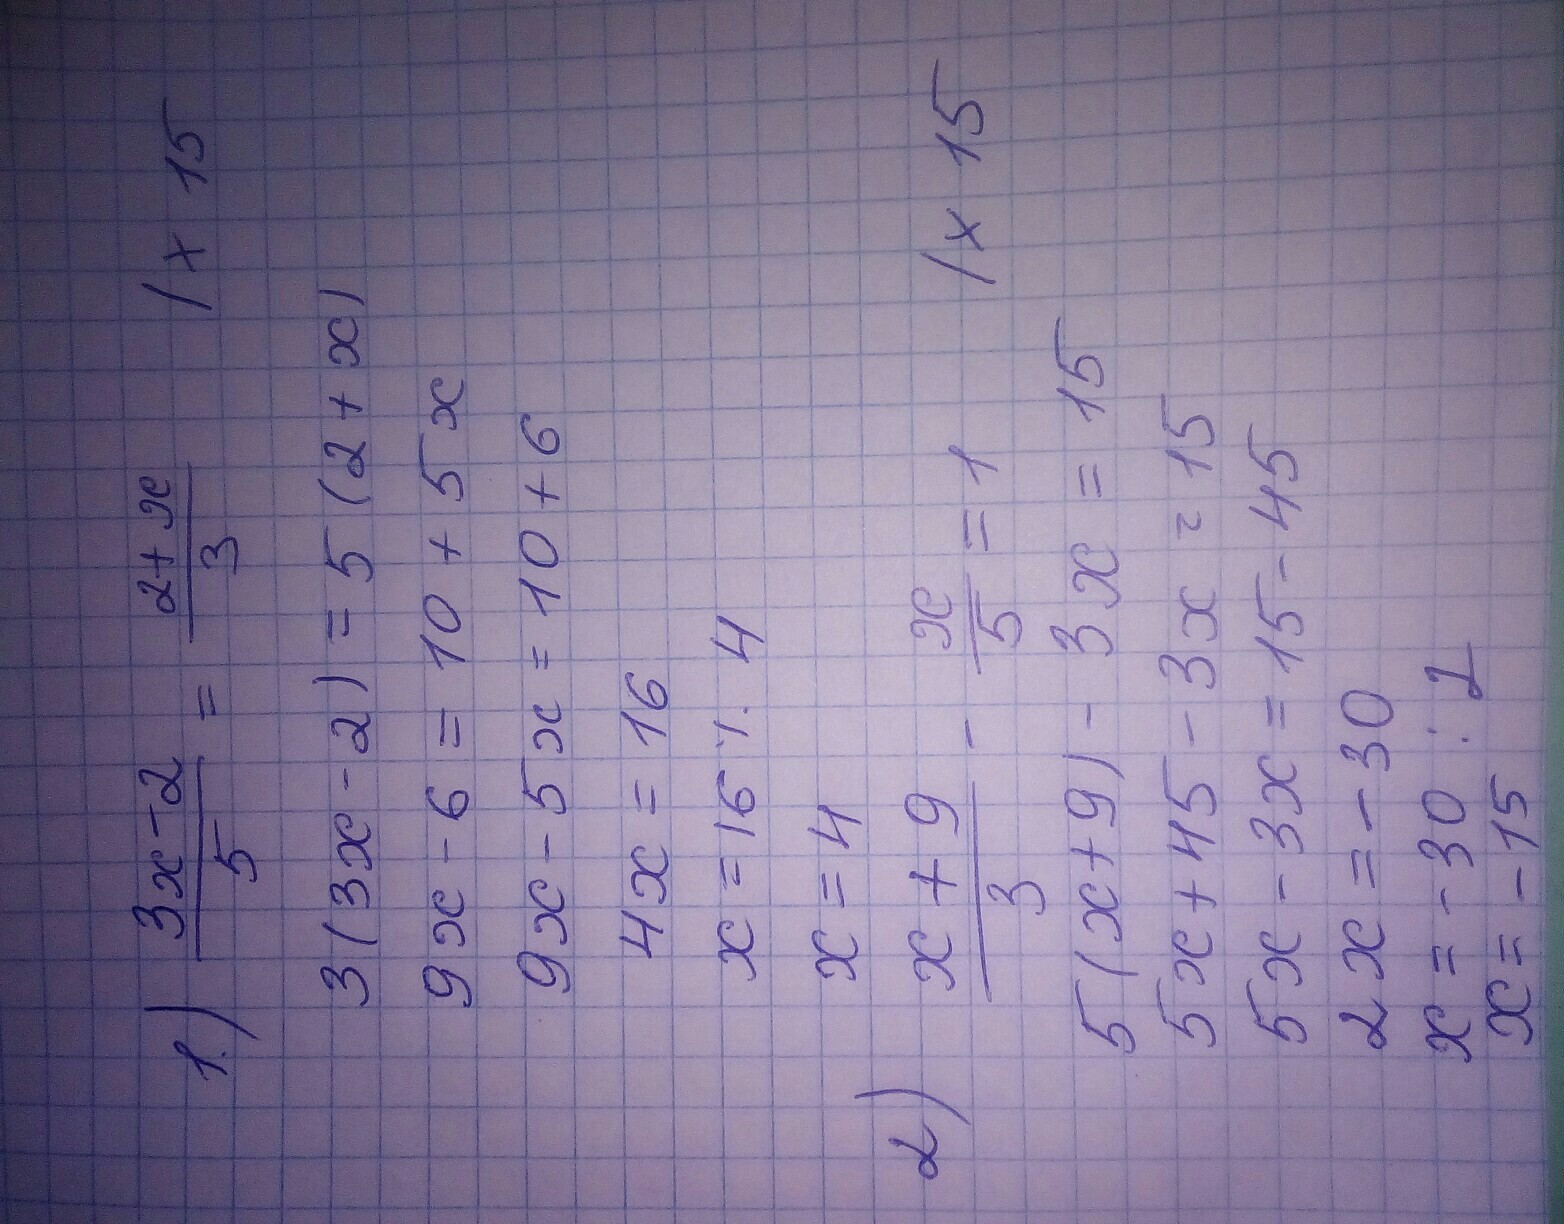 1.) 3x-2/5 = 2+x/3 / x 15
3(3x-2) = 5(2+x)
9x-6 = 10+5x
9x-5x = 10+6
4x = 16
x = 16 : 4
x = 4
2) x+9/3 - x/5 = 1 / x 15
5(x+9) - 3x = 15
5x+45-3x = 15
5x-3x = 15-45
2x = -30
x = -30 : 2
x = -15